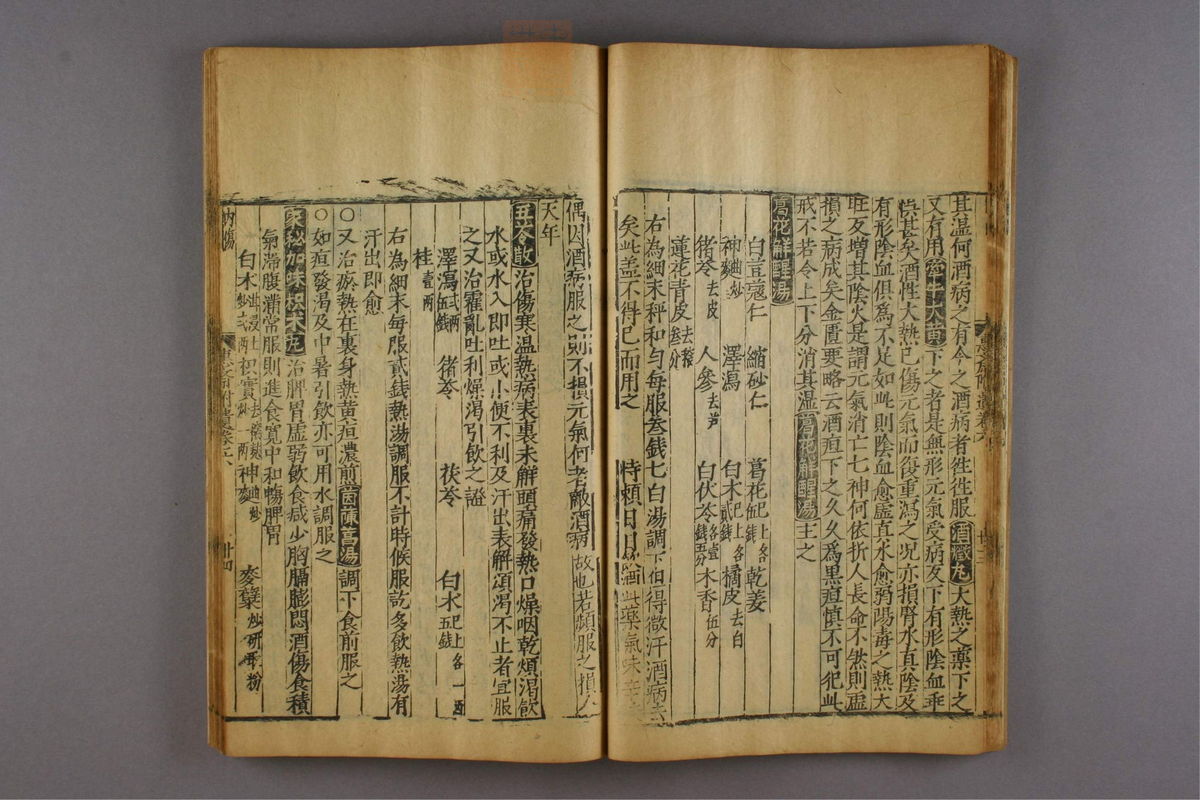 其温何酒病之有今之酒病者徃徃服酒癥丸大熱之藥下之
又有用牽牛大黄下之者是無形元氣受病反下有形陰血乖
悮甚矣酒性大熱已傷元氣而復重瀉之况亦損腎水真陰及
有形陰血俱爲不足如此則陰血愈虚真水愈弱陽毒之熱大
旺反增其陰火是謂元氣消亡七神何依折人長命不然則虚
損之病成矣金匱要略云酒疸下之久久爲黒疸慎不可犯此
戒不若令上下分消其温葛花解酲湯主之
葛花解酲湯
白荳蔻仁 縮砂仁 葛花已上各伍錢 乾姜
神麯炒 澤瀉 白术已上各貳錢 橘皮去白
猪苓去皮 人參去芦 白伏苓各壹錢五分 木香伍分
蓮花青皮去穰叁分
右為細末秤和匀每服叁錢匕白湯調下但得微汗酒病去
矣此盖不得已而用之 恃頼日日 酒此藥氣味辛
偶因酒病服之則不損元氣何者敵酒病故也若頻服之損人
天年
五苓散治傷寒温熱病表裏未解頭痛發熱口燥咽乾煩渴飲
水或水入即吐或小便不利及汗出表解煩渴不止者宜服
之又治霍亂吐利燥渴引飲之證
澤瀉貳兩伍錢 猪苓 茯苓 白术已上各一兩五錢
桂壹兩
右為細末每服貳錢熱湯調服不計時候服訖多飲熱湯有
汗出即愈
○又治瘀熱在裏身熱黄疸濃煎茵蔯蒿湯調下食前服之
○如疸發渴及中暑引飲亦可用水調服之
家秘加味枳术丸治脾胃虚弱飲食减少胸膈膨悶酒傷食積
氣滞腹滿常服則進食寛中和暢脾胃
白术 枳實 神麯炒 麥糵炒研取粉
内傷 廿四